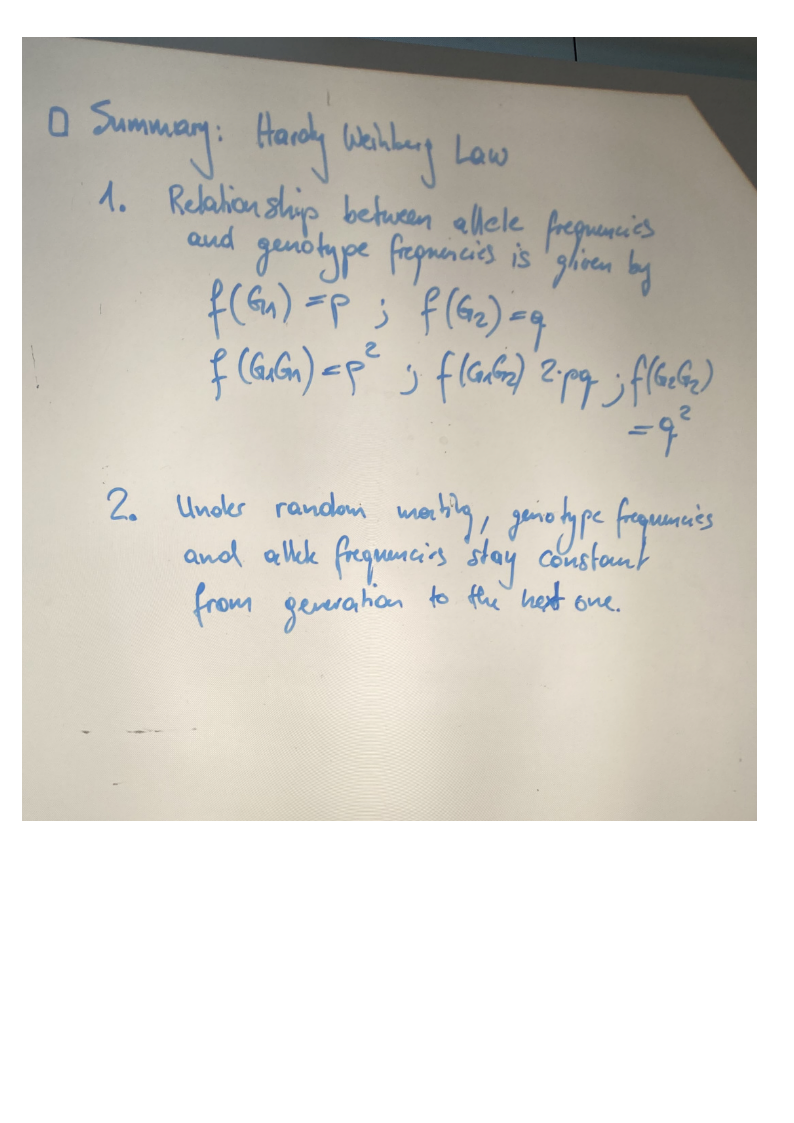 □ Summary: Hardy Weinberg Law
1. Relationship between allele frequencies
and genotype frequencies is given by
f(G₁) = p ; f(G₂) = q
f(G₁G₁) = p² ; f(G₁G₂) 2·pq ; f(G₂G₂)
= q²
2. Under random mating, genotype frequencies
and allele frequencies stay constant
from generation to the next one.